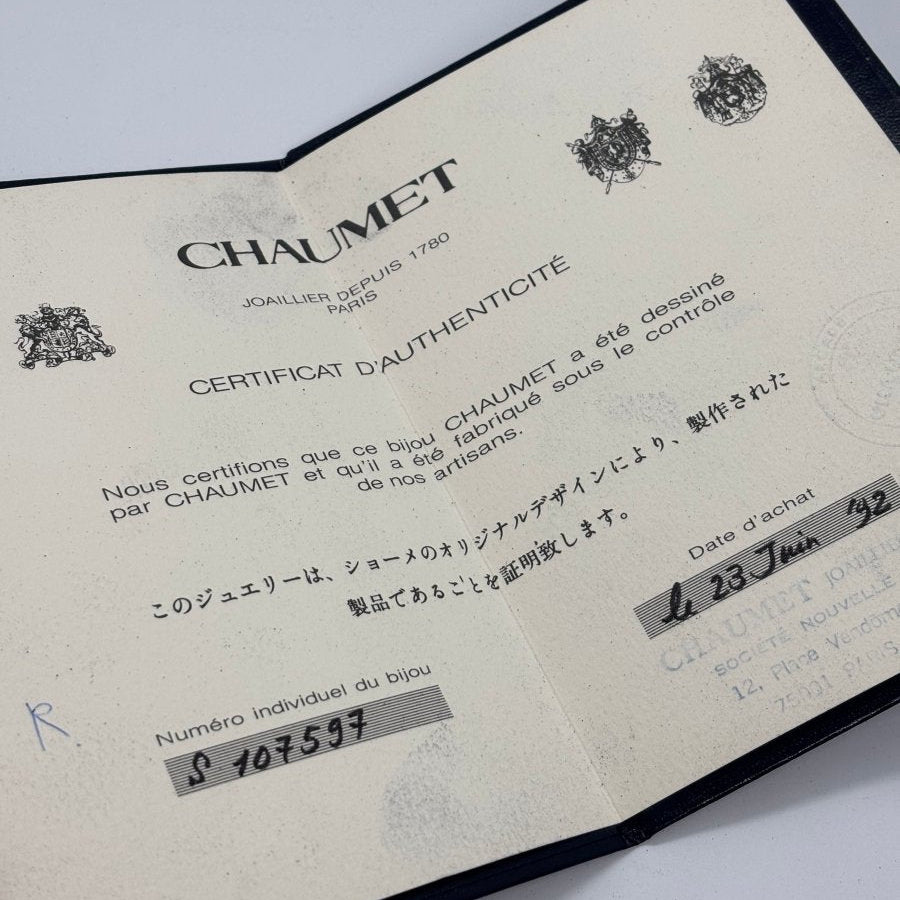 CHAUMET
JOAILLIER DEPUIS 1780
PARIS
CERTIFICAT D'AUTHENTICITÉ
Nous certifions que ce bijou CHAUMET a été dessiné
par CHAUMET et qu'il a été fabriqué sous le contrôle
de nos artisans.
このジュエリーは、ショーメのオリジナルデザインにより、製作された
製品であることを証明致します。
Date d'achat
le 23 Juin '92
CHAUMET JOAILLIER
SOCIÉTÉ NOUVELLE
12, Place Vendôme
75001 PARIS
Numéro individuel du bijou
S 107597
R.